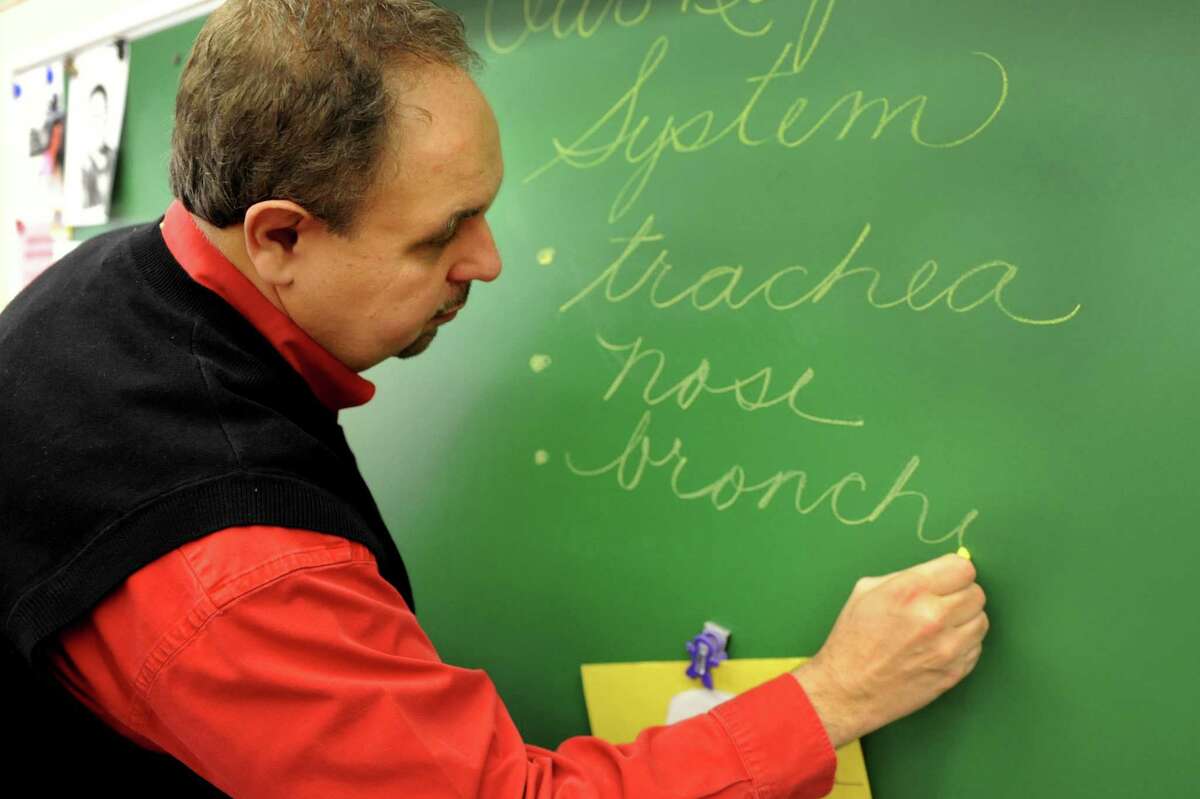 System
• trachea
• nose
• bronchi